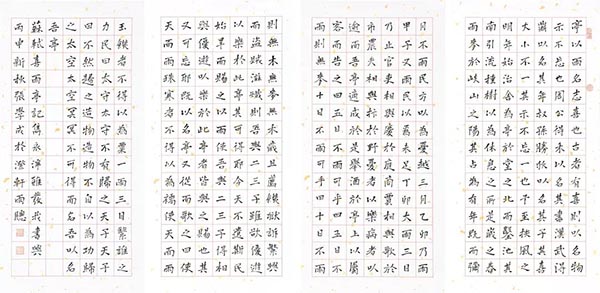 亭以雨名志喜也古者有喜則以名物
示不忘也周公得禾以名其書漢武得
鼎以名其年叔孫勝狄以名其子其喜
之大小不齊其示不忘一也余至扶風之
明年始治官舍為亭於堂之北而鑿池其
南引流種樹以為休息之所是歲之春
雨麥於岐山之陽其占為有年既而彌
月不雨民方以為憂越三月乙卯乃雨
甲子又雨民以為未足丁卯大雨三日
乃止官吏相與慶於庭商賈相與歌於
市農夫相與忭於野憂者以樂病者以
愈而吾亭適成於是舉酒於亭上以屬
客而告之曰五日不雨可乎曰五日不雨
則無麥十日不雨可乎曰十日不雨
則無禾無麥無禾歲且薦饑獄訟繁興
而盜賊滋熾則吾與二三子雖欲優游
以樂於此亭其可得耶今天不遺斯民
始旱而賜之以雨使吾與二三子得相
與優游以樂於此亭者皆雨之賜也其
又可忘耶既以名亭又從而歌之曰使
天而雨珠寒者不得以為襦使天而雨
玉饑者不得以為粟一雨三日繄誰之
力民曰太守太守不有歸之天子天子
曰不然歸之造物造物不自以為功歸
之太空太空冥冥不可得而名吾以名
吾亭
蘇軾喜雨亭記
丙申新秋張學成於澄軒雨聽